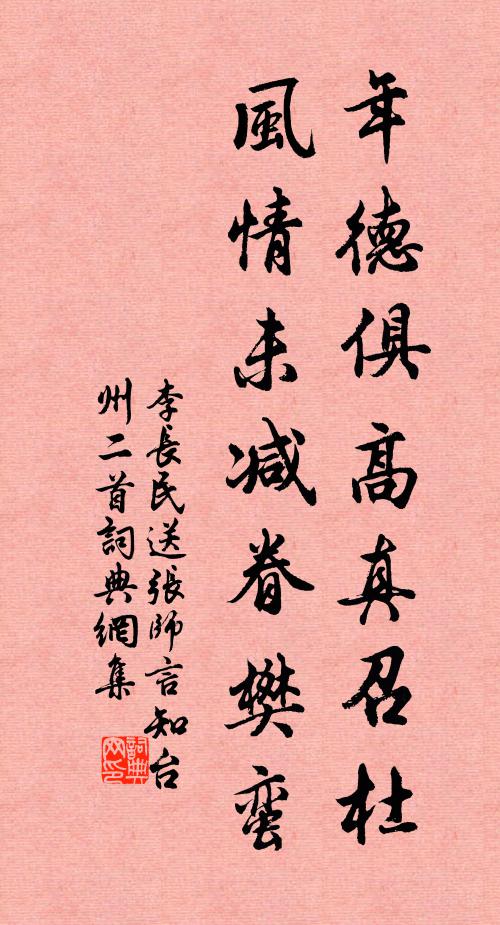 年德俱高真召杜
風情未減眷樊蛮
李長民送張師言知台
州二首詞典網集
詞典
网印